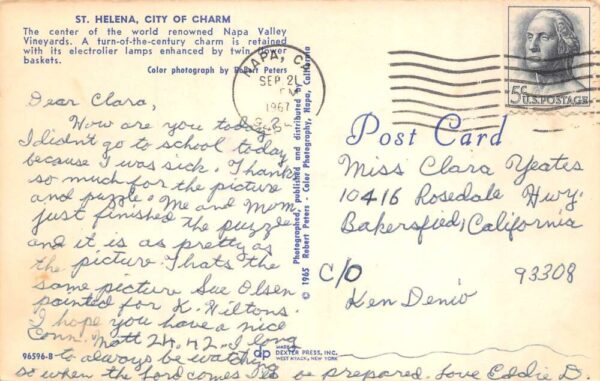 ST. HELENA, CITY OF CHARM
The center of the world renowned Napa Valley
Vineyards. A turn-of-the-century charm is retained
with its electrolier lamps enhanced by twin flower
baskets.
Color photograph by Robert Peters
NAPA, CA
SEP 21
PM
1967
5c U.S. POSTAGE
Dear Clara,
How are you today
I didn't go to school today
because I was sick. Thanks
so much for the picture
and puzzle. Me and Mom
just finished the puzzle
and it is as pretty as
the picture. Thats the
same picture Sue Olsen
painted for K. Wiltons.
I hope you have a nice
Conn. Matt 24:42. I long
to always be watching
so when the Lord comes I'll be prepared. Love Eddie D.
96596-B
Photographed, published and distributed by
© 1965 Robert Peters - Color Photography, Napa, California
Post Card
Miss Clara Yeates
10416 Rosedale Hwy.
Bakersfied, California
93308
C/O
Ken Denio
dp
MADE BY
DEXTER PRESS, INC.
WEST NYACK, NEW YORK